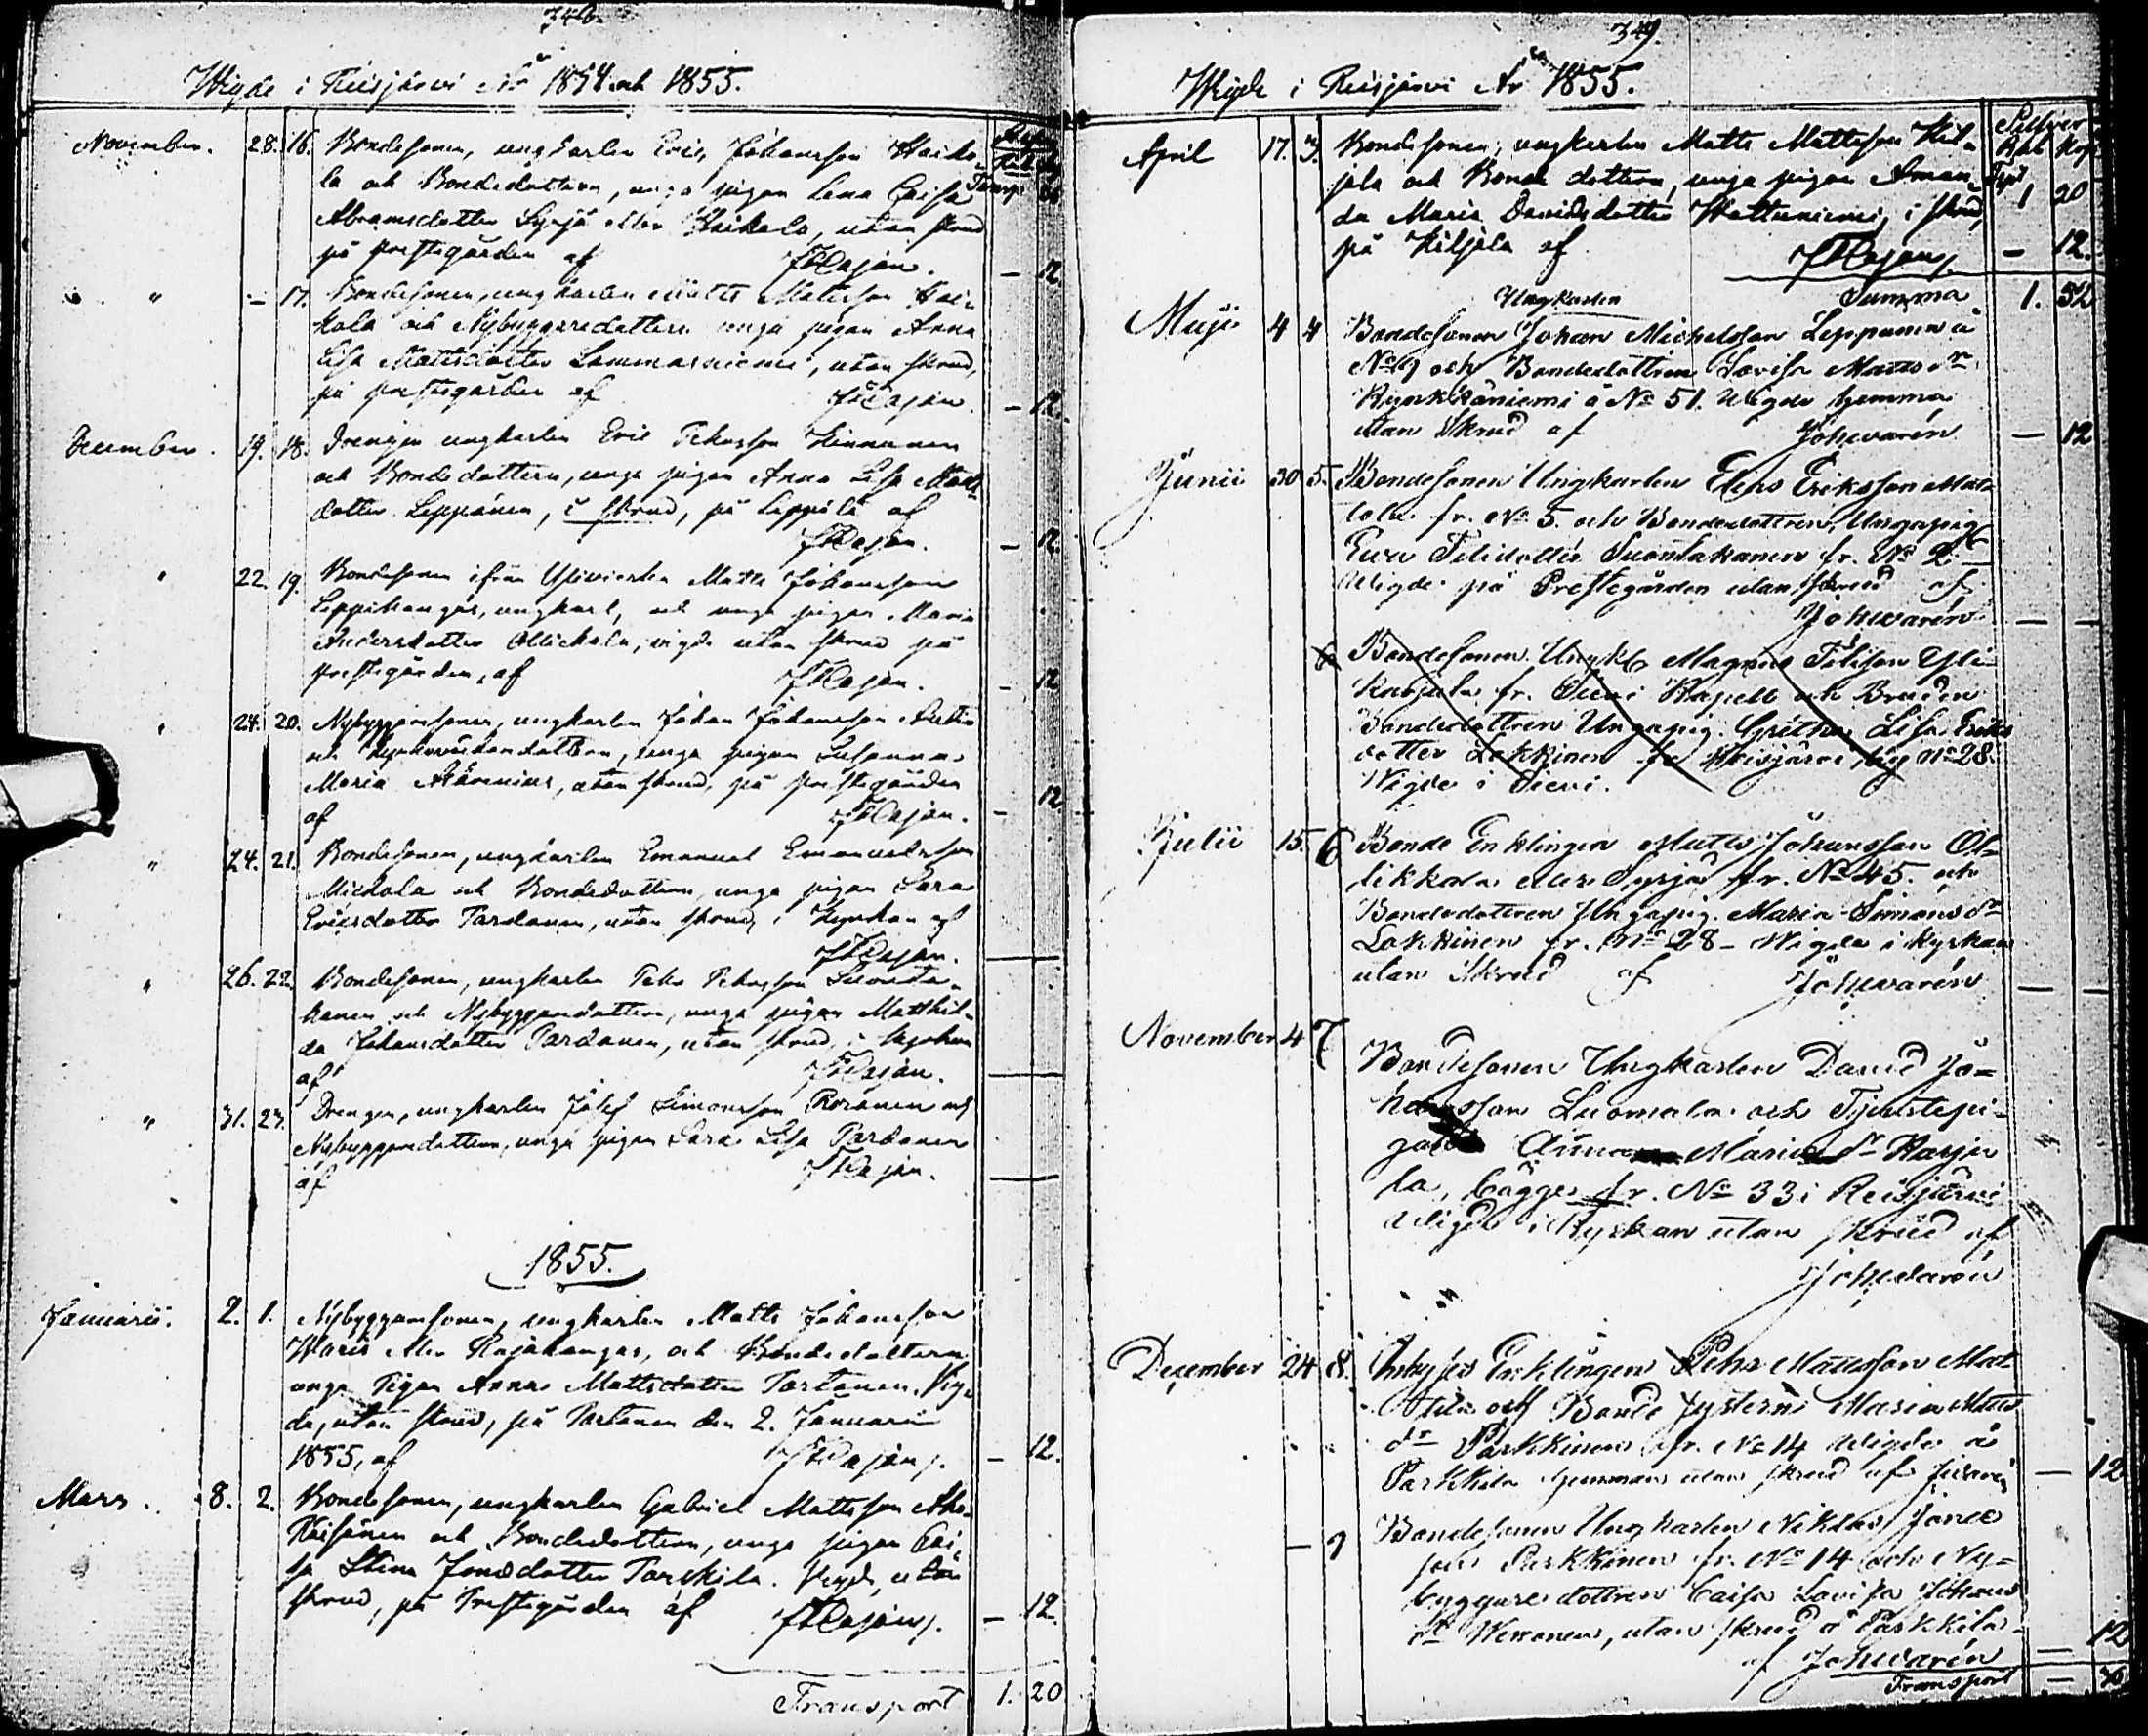 348.
Wigde i Reisjärvi År 1854 och 1855.
November. 28. 16. Bondesonen, ungkarlen Eric Johansson Haiko-
la och Bondedottern, unga pigan Lena Caisa
Abramsdotter Syrjä eller Haikola, utan skrud
på prestegården af
— 12
" — 17. Bondesonen, ungkarlen Matts Matsson Hai-
kola och Nybyggaredottern unga pigan Anna
Lisa Mattsdotter Lammasniemi, utan skrud,
på prestegården af
— 12.
December. 19. 18. Drengen ungkarlen Eric Petersson Kinnunen
och Bondedottern, unga pigan Anna Lisa Matts
dotter Leppänen, i skrud, på Leppilä af
— 12.
" 22. 19. Bondesonen ifrån Ylivieska Matts Johansson
Leppikangas, ungkarl, och unga pigan Maria
Andersdotter Ollickala, vigde utan skrud på
prestegården, af
— 12
" 24. 20. Nybyggaresonen, ungkarlen Johan Johansson
och dottern, unga pigan Susanna
Maria, utan skrud, på prestegården
af
— 12
" 24. 21. Bondesonen, ungkarlen Emanuel Emanuelsson
Mickola och Bondedottern, unga pigan Sara
Ericsdotter Pardanen, utan skrud, i Kyrkan af
—
" 26. 22. Bondesonen, ungkarlen Peter Petersson Suonta-
kanen och Nybyggaredottern, unga pigan Matthil-
da Johansdotter Pardanen, utan skrud, i kyrkan
af
—
" 31. 23. Drengen, ungkarlen Josef Simonsson Roranen och
Nybyggaredottern, unga pigan Sara Lisa Pardanen
af
—
1855.
Januarii. 2. 1. Nybyggaresonen, ungkarlen Matts Johansson
Waris eller Rajakangas, och Bondedottern
unga Pigan Anna Mattsdotter Partanen. Vig-
de, utan skrud, på Partanen den 2. Januarii
1855, af
— 12.
Mars. 8. 2. Bondesonen, ungkarlen Gabriel Mattsson Aho-
Räisänen och Bondedottern, unga pigan Cai-
sa Stina Jonædotter Parkkila. Vigde, utan
skrud, på Prestegården af
— 12.
Transport 1. 20
349.
Wigde i Reisjärvi År 1855.
Silfver
Rub Kop
April 17. 3. Bondesonen, ungkarlen Matts Mattsson Kil-
jala och Bonde dottern, unga pigan Aman- 1 20
da Maria Davidsdotter Wattuniemi, i skrud,
på Kiljala af
— 12.
Ungkarlen Summa 1. 32
Maji 4 4 Bondesonen Johan Michelsson Leppänen å
No 9 och Bondedottren Lovisa Matts dr
Kyrkköniemi å No 51. Wigde hemma
utan Skrud af Joh. Warén — 12
Junii 30 5. Bondesonen Ungkarlen Elias Eriksson Mat-
tola fr. No 5. och Bondedottren, Ungapig
Ewa Felixdotter Suontakanen fr. No 2
Wigde på Prestegården utan skrud af
Joh. Warén —
6 Bondesonen Ungkl. Magnus Felixson Yli-
karjula fr. Sievi Kapell och Bruden
Bondedottren Ungapig. Gretha Lisa Eriks
dotter Lokkinen fr Reisjärvi by No 28.
Wigde i Sievi.
Julii 15. 6 Bonde Enklingen Matts Johansson Ol-
likkala eller Syrjä fr. No 45. och
Bondedottren Ungapig. Maria Simons dr
Lokkinen fr. No 28 – Wigde i Kyrkan
utan Skrud af Joh. Warén —
November 4 7 Bondesonen Ungkarlen David Jo-
hansson Luomala och Tjenstepi-
gan Anna Maria dr Karja
la, bägge fr. No 33 i Reisjärvi
Wigde i Kyrkan utan skrud af
Joh. Warén
December 24 8. Inhyses Enklingen Petter Mattsson Mat
tila och Bonde systern Maria Matts
dr Parkkinen fr. No 14 Wigde å
Parkkila hemman utan skrud af — 12
— 9 Bondesonen Ungkarlen Niklas Jonæ
son Parkkinen fr. No 14 och Ny-
byggare dottren Caisa Lovisa Johans
dr Weronen, utan skrud å Parkkila — 12
af Joh. Warén
Transport — 36